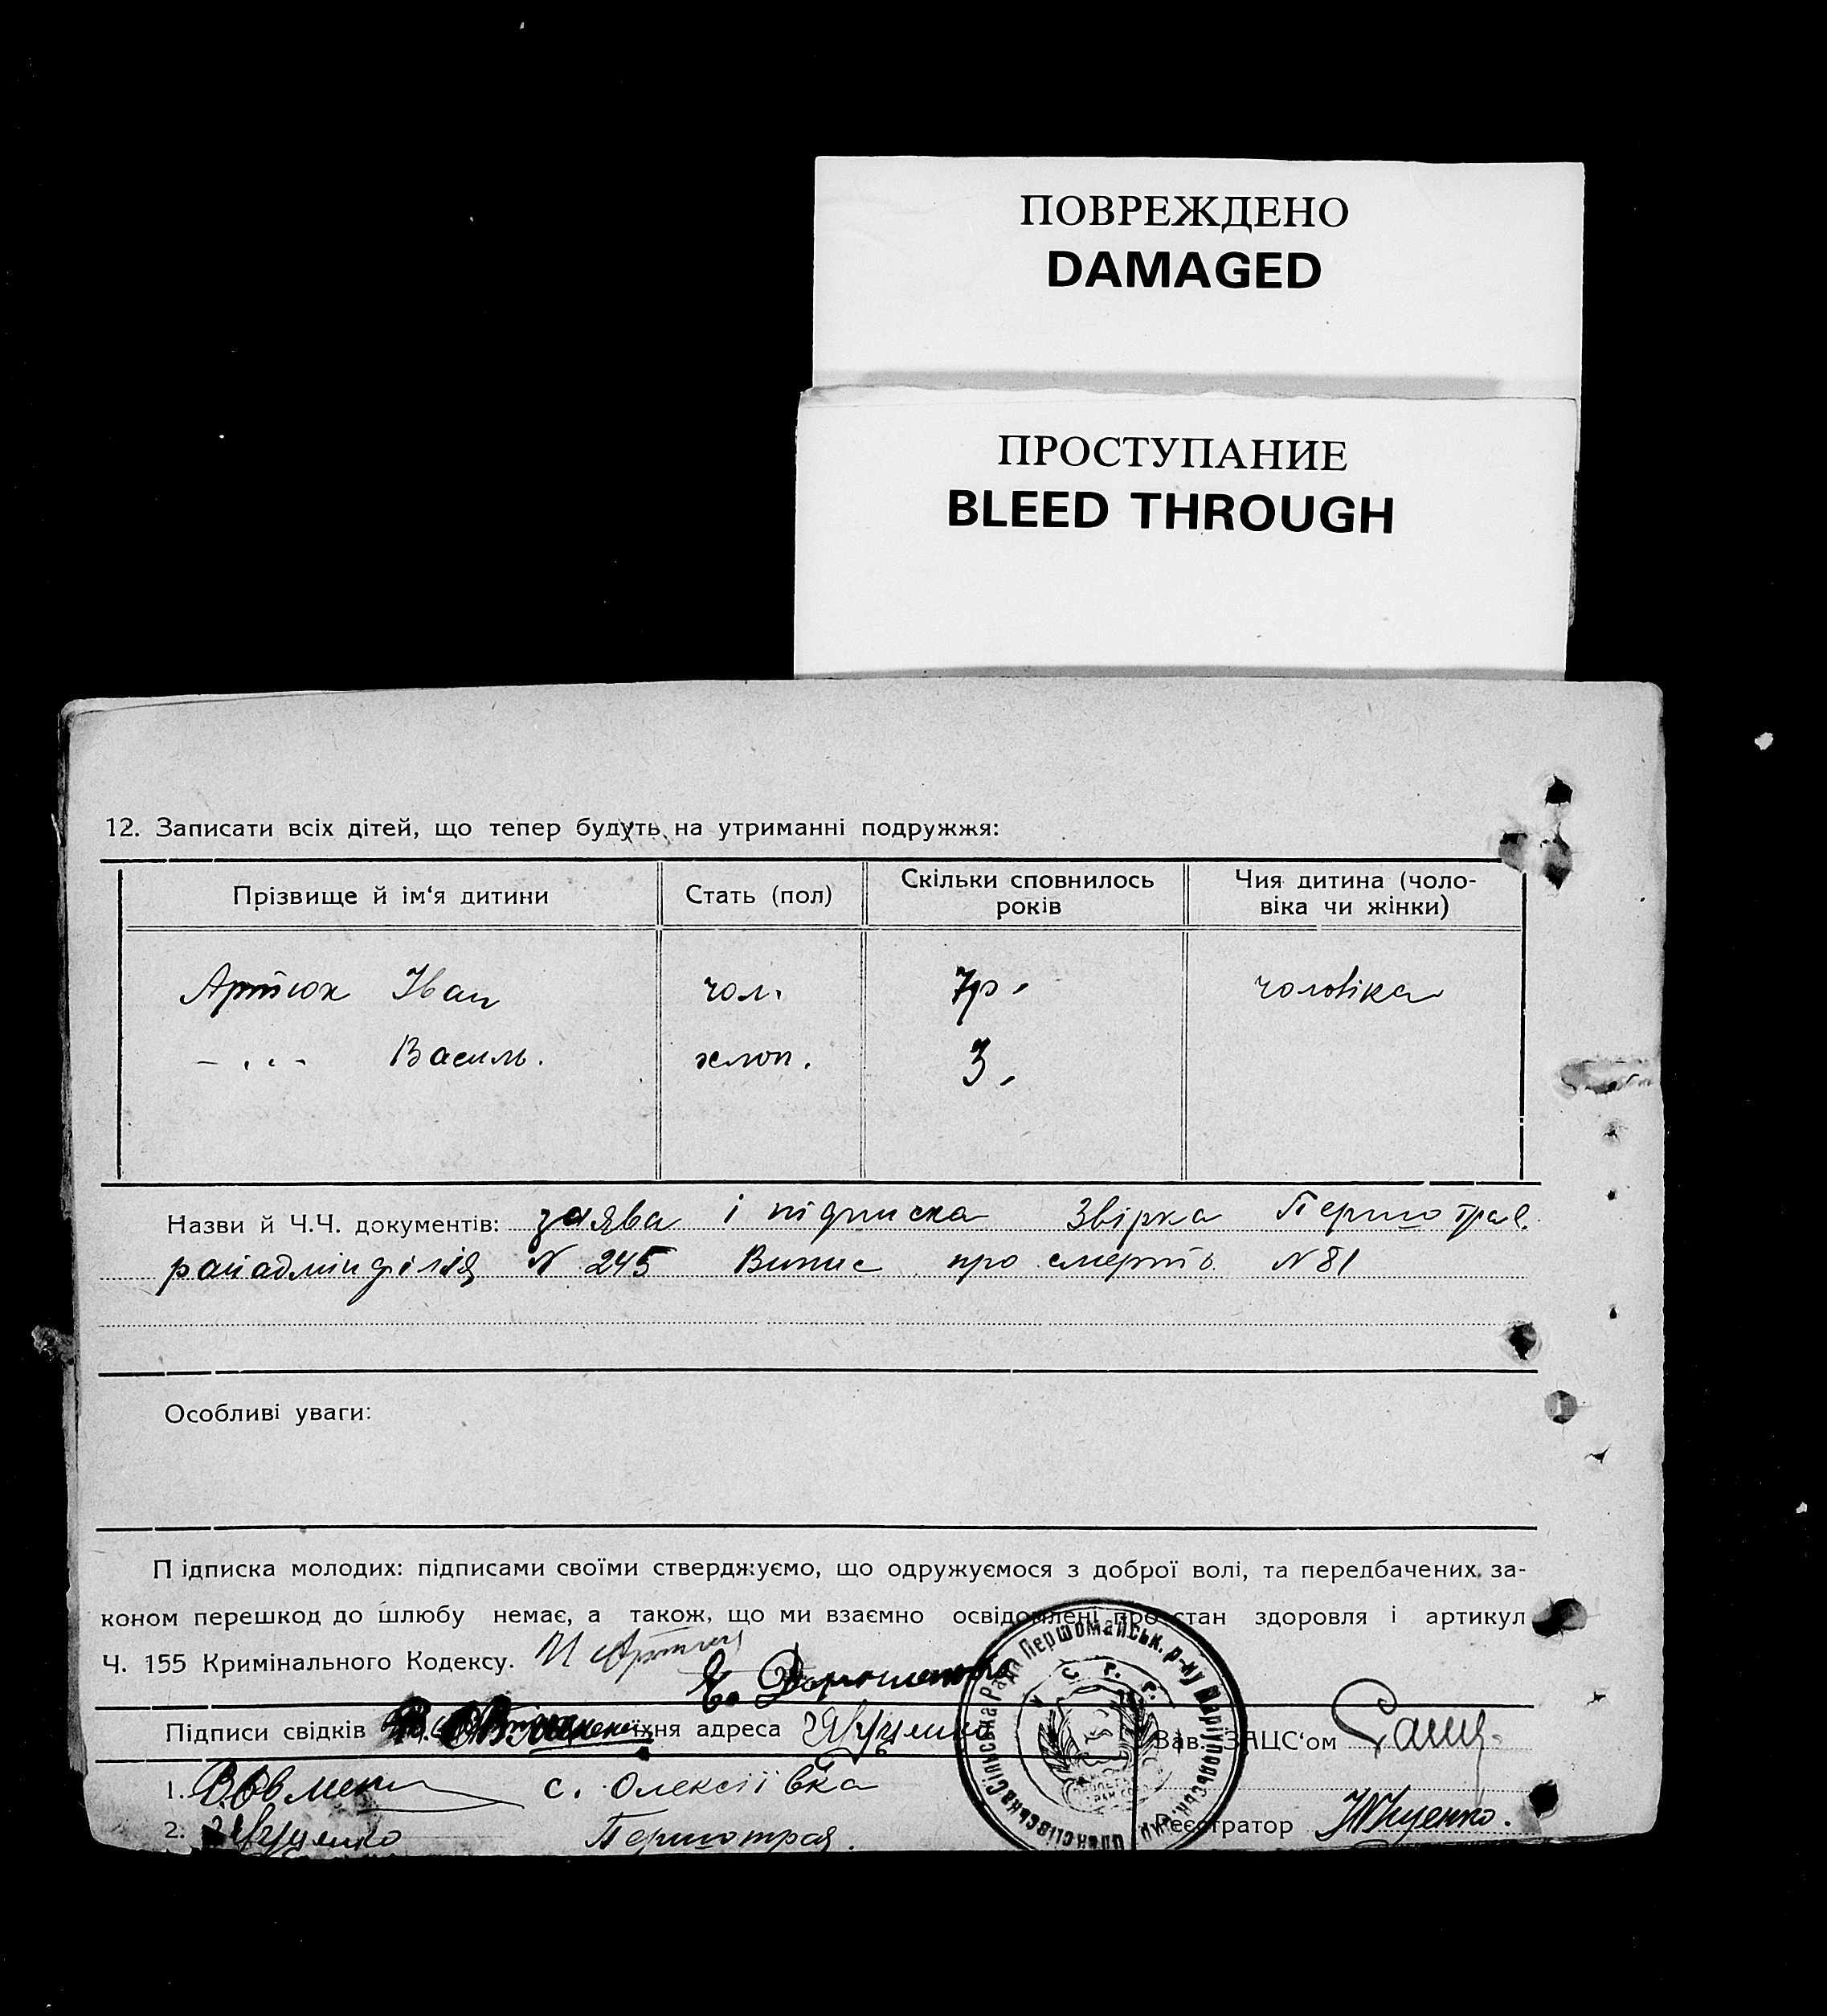 ПОВРЕЖДЕНО
DAMAGED
ПРОСТУПАНИЕ
BLEED THROUGH
12. Записати всіх дітей, що тепер будуть на утриманні подружжя:
Прізвище й ім‘я дитини Стать (пол) Скільки сповнилось років Чия дитина (чоловіка чи жінки)
Артюх Іван чол. 7р. чоловіка
— „ — Василь. хлоп. 3.
Назви й Ч.Ч. документів: заява і підписка Звірка Першотрав.
райадмінфілія N 245 Випис про смерть N 81
Особливі уваги:
Підписка молодих: підписами своїми стверджуємо, що одружуємося з доброї волі, та передбачених за-
коном перешкод до шлюбу немає, а також, що ми взаємно освідомлені про стан здоровля і артикул
Ч. 155 Кримінального Кодексу.
Підписи свідків їхня адреса Зав. ЗАЦС‘ом
1. с. Олексіївка
2. Першотрав. Реєстратор
Олексіївська Сільська Рада Першомайськ. р-ну Маріупольськ.